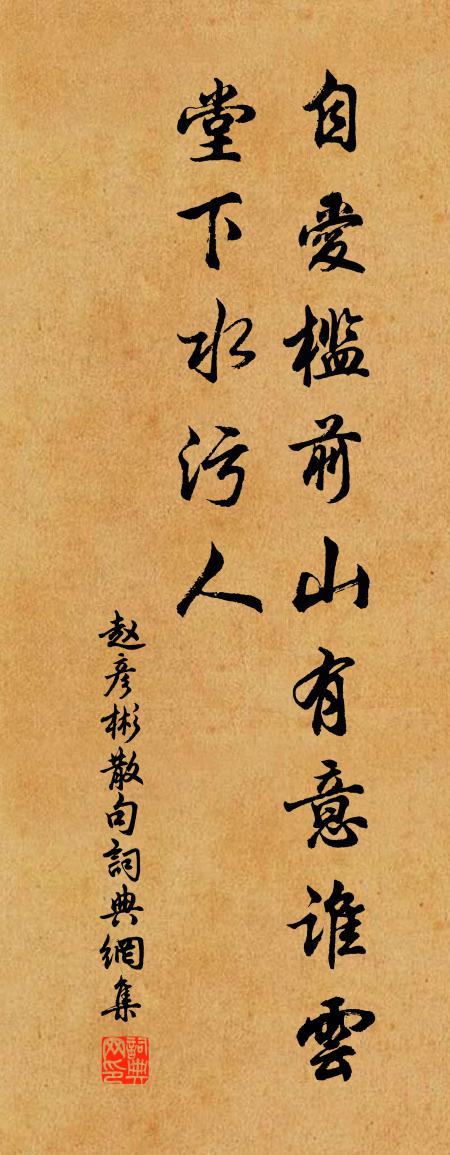 自愛檻前山有意誰雲
堂下水污人
赵彥彬散句詞典網集
詞典網印